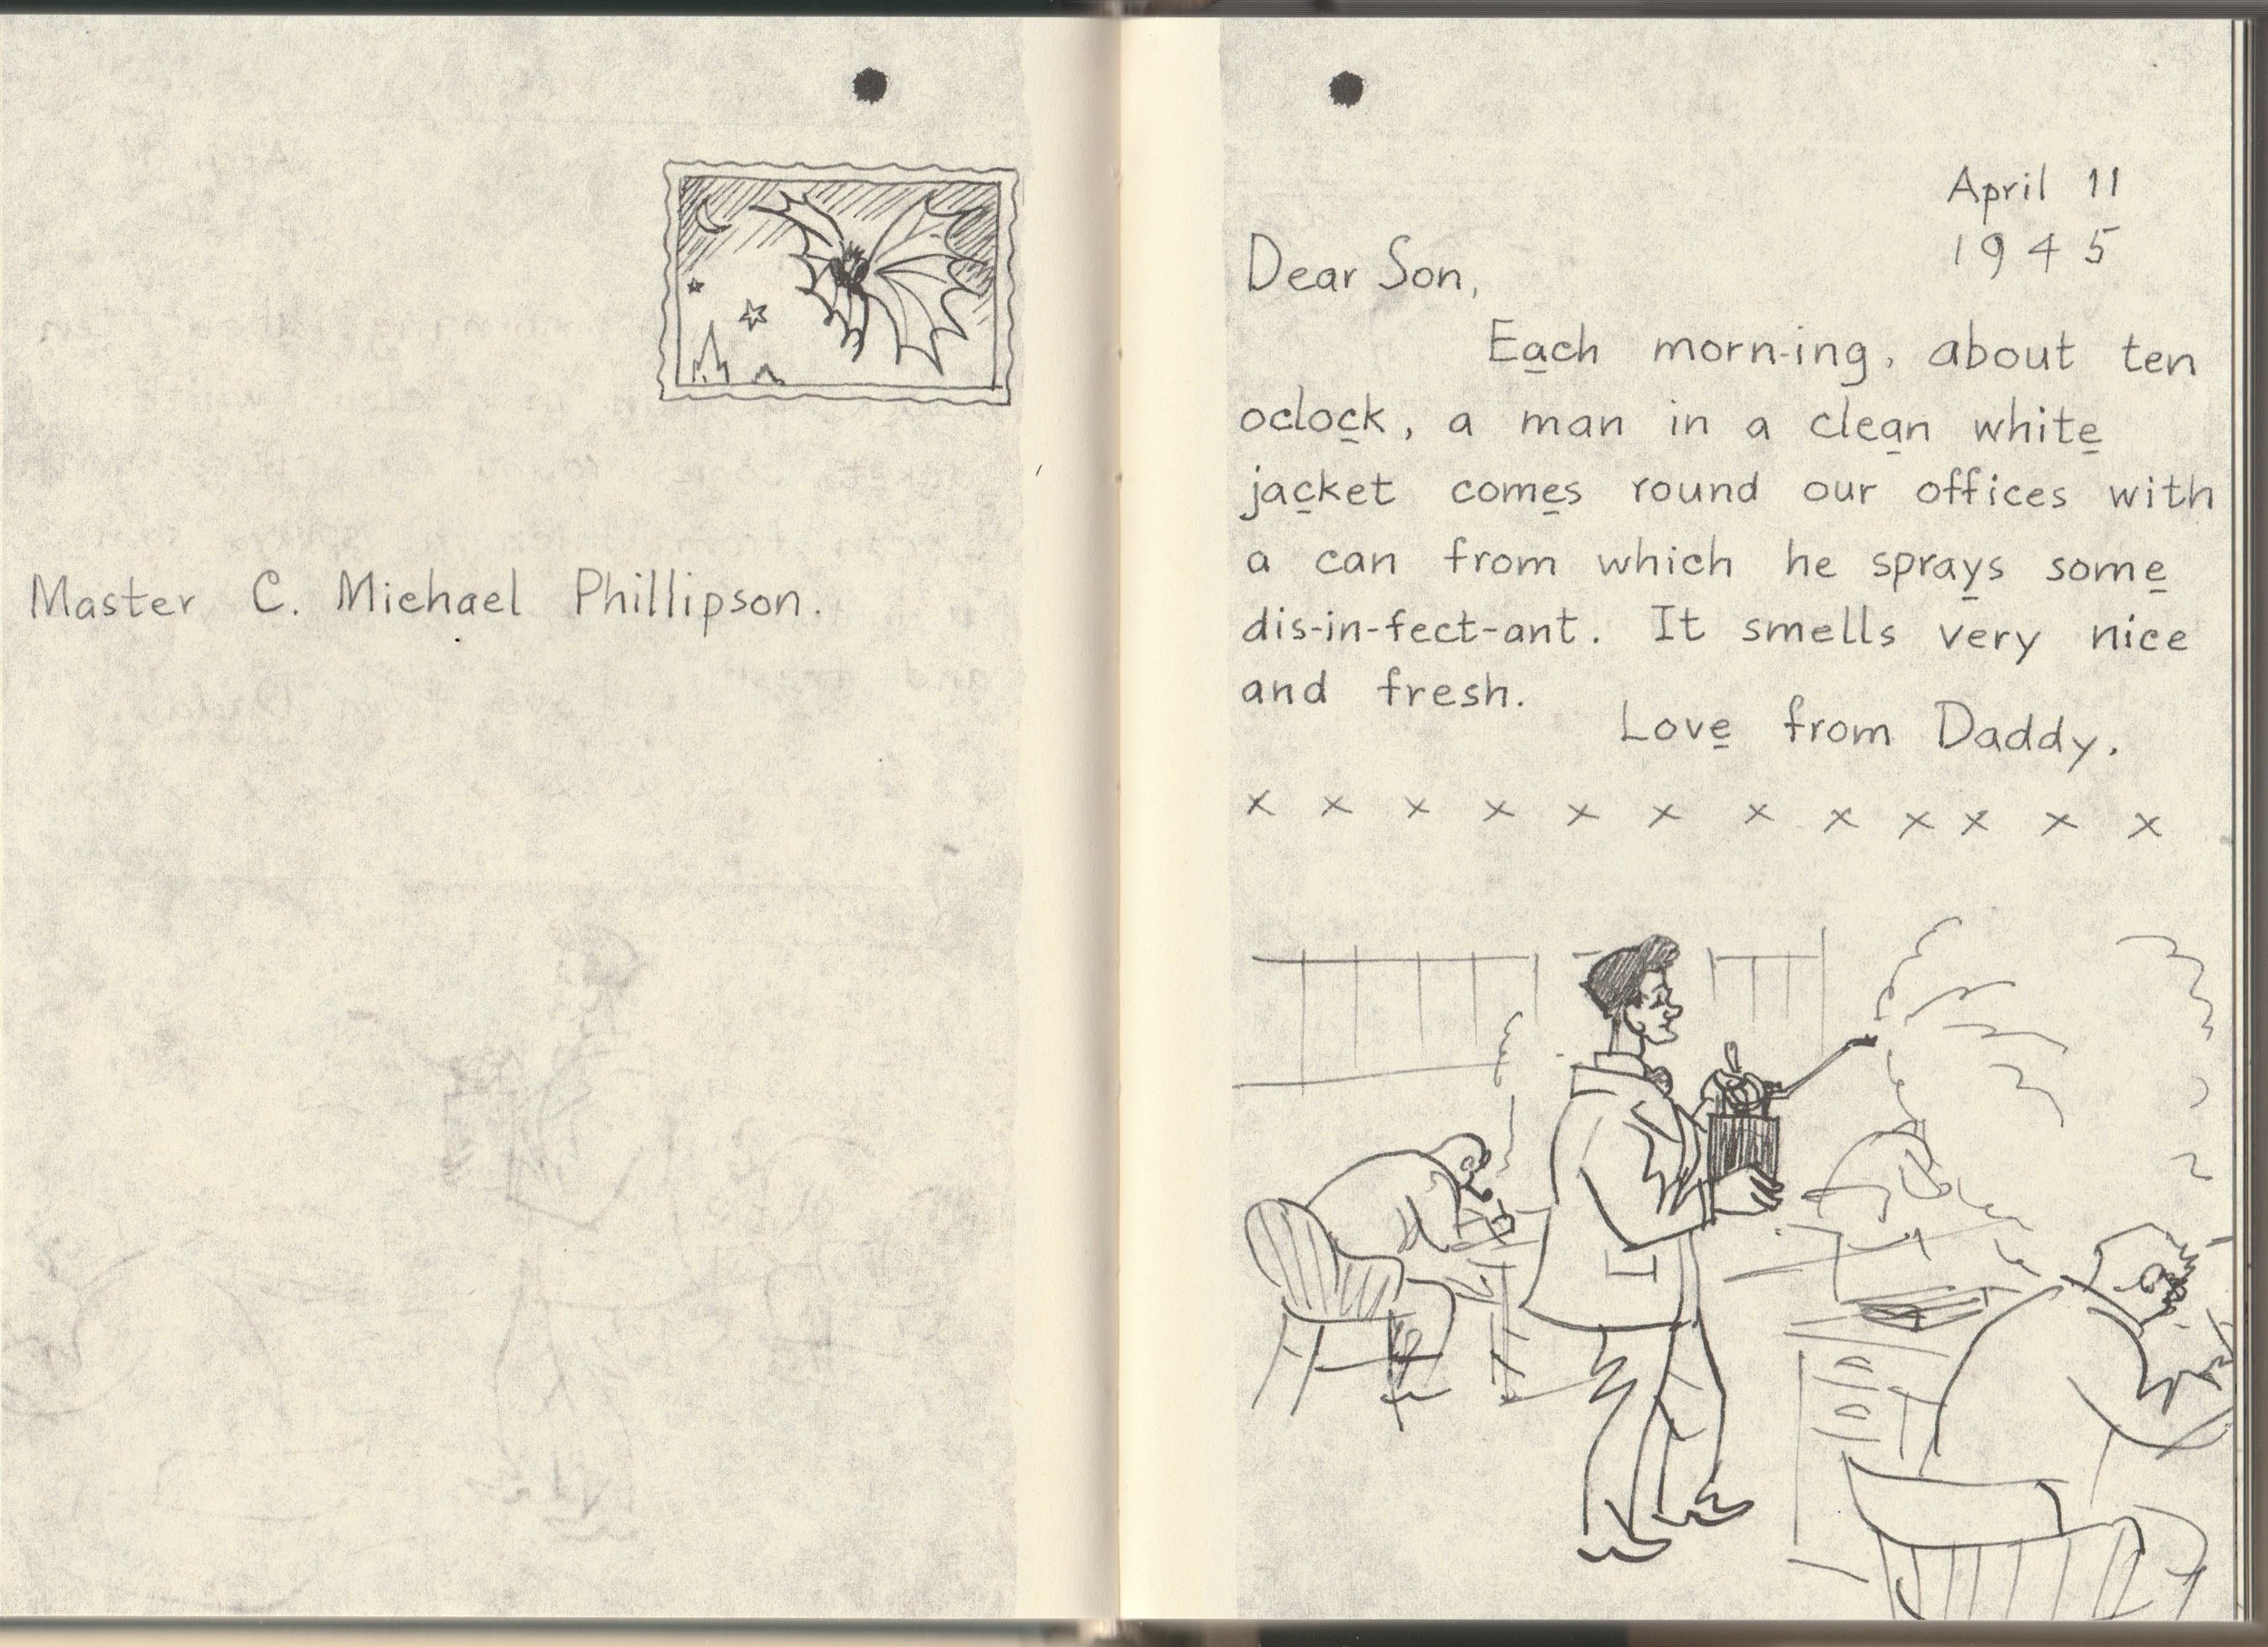 Master C. Michael Phillipson.
April 11
1945
Dear Son,
Each morn-ing, about ten
oclock, a man in a clean white
jacket comes round our offices with
a can from which he sprays some
dis-in-fect-ant. It smells very nice
and fresh.
Love from Daddy.
x x x x x x x x x x x x